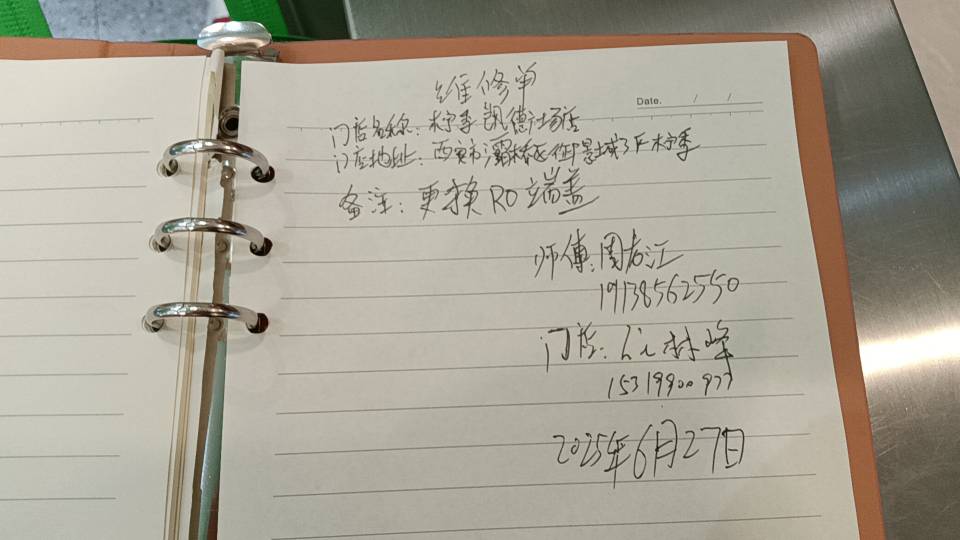 维修单
Date. / /
门店名称：柠季凯德广场店
门店地址：西安市灞桥区 景城3F柠季
备注：更换RO端盖
师傅：周友江
19138562550
门店： 林峰
15319900977
2025年6月27日